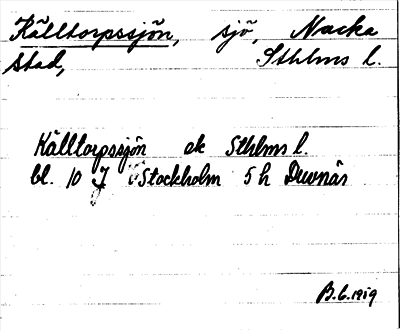 Källtorpssjön, sjö, Nacka
stad, Sthlms l.
Källtorpssjön ek Sthlms l.
bl. 10 J Stockholm 5 h Duvnäs
B.C. 1959